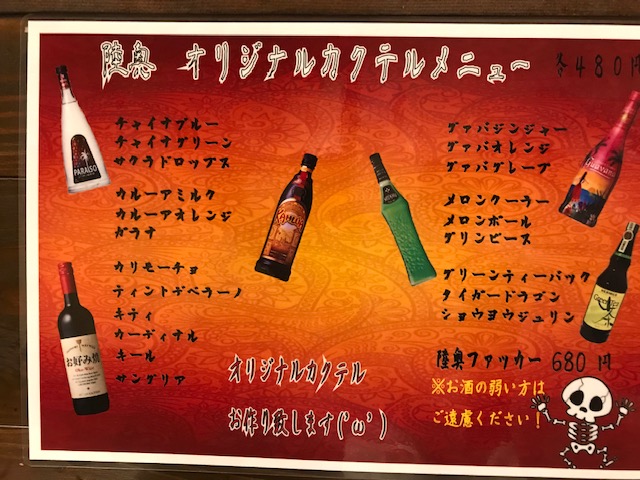 陸奥 オリジナルカクテルメニュー 各480円
チャイナブルー
チャイナグリーン
サクラドロップス
カルーアミルク
カルーアオレンジ
ガラナ
カリモーチョ
ティントデベラーノ
キティ
カーディナル
キール
サングリア
グァバジンジャー
グァバオレンジ
グァバグレープ
メロンクーラー
メロンボール
グリンピース
グリーンティーバック
タイガードラゴン
ショウヨウジュリン
陸奥ファッカー 680円
※お酒の弱い方は
ご遠慮ください!
オリジナルカクテル
お作り致します('ω')
PARAISO
KAHLUA
お好み焼